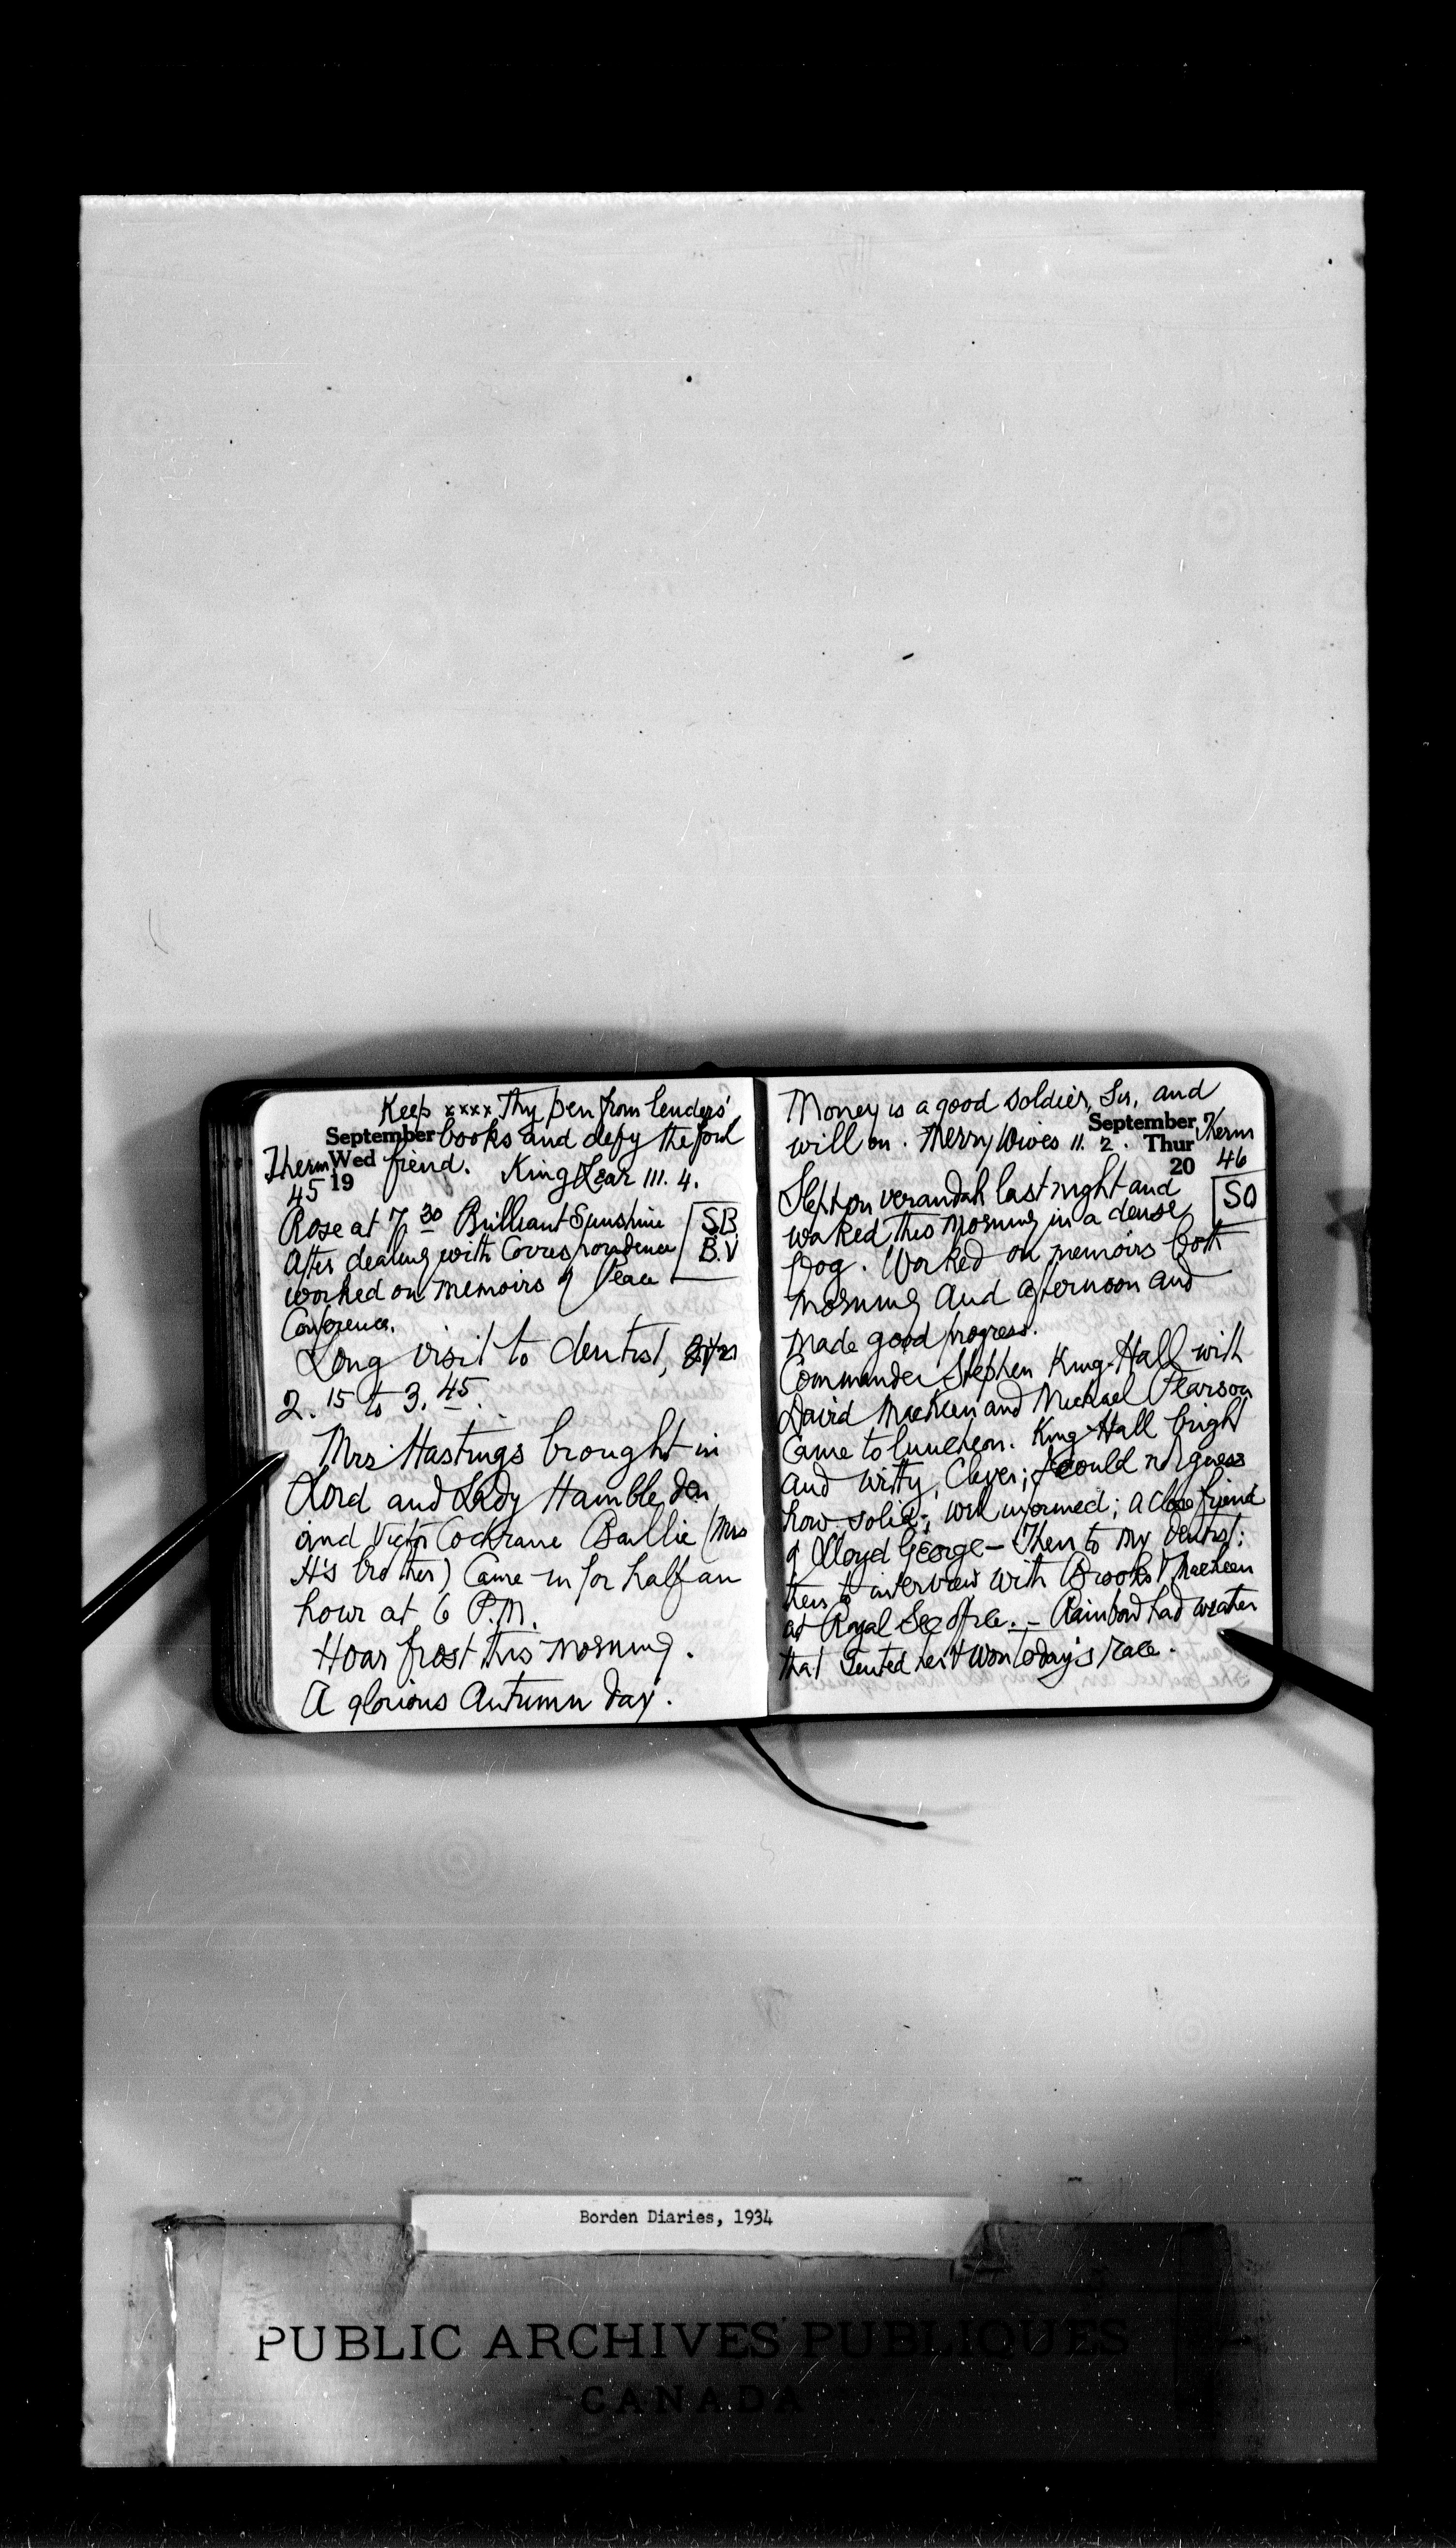 Keep xxxx Thy pen from lenders'
September books and defy the foul
Therm Wed fiend. King Lear III. 4.
45 19
Rose at 7 30 Brilliant Sunshine [SB
After dealing with Correspondence B.V
worked on memoirs of Peace
Conference.
Long visit to dentist,
2.15 to 3.45.
Mrs Hastings brought in
Lord and Lady Hambleden
and Victor Cochrane Baillie (Mrs
H's brother) Came in for half an
hour at 6 P.M.
Hoar frost this morning.
A glorious Autumn day.
Money is a good soldier, Sir, and
September
will on. Merry Wives 11. 2. Thur Therm
20 46
Slept on verandah last night and [SO
waked this morning in a dense
fog. Worked on memoirs both
morning and afternoon and
made good progress.
Commander Stephen King-Hall with
David MacKeen and Michael Pearson
Came to luncheon. King-Hall bright
and witty, Clever; I could not guess
how solid; well informed; a close friend
of Lloyd George - Then to my dentist;
then to interview with Brooks & MacKeen
at Royal Sec office. - Rainbow had weather
that suited her & won today's race.
Borden Diaries, 1934
PUBLIC ARCHIVES PUBLIQUES
CANADA